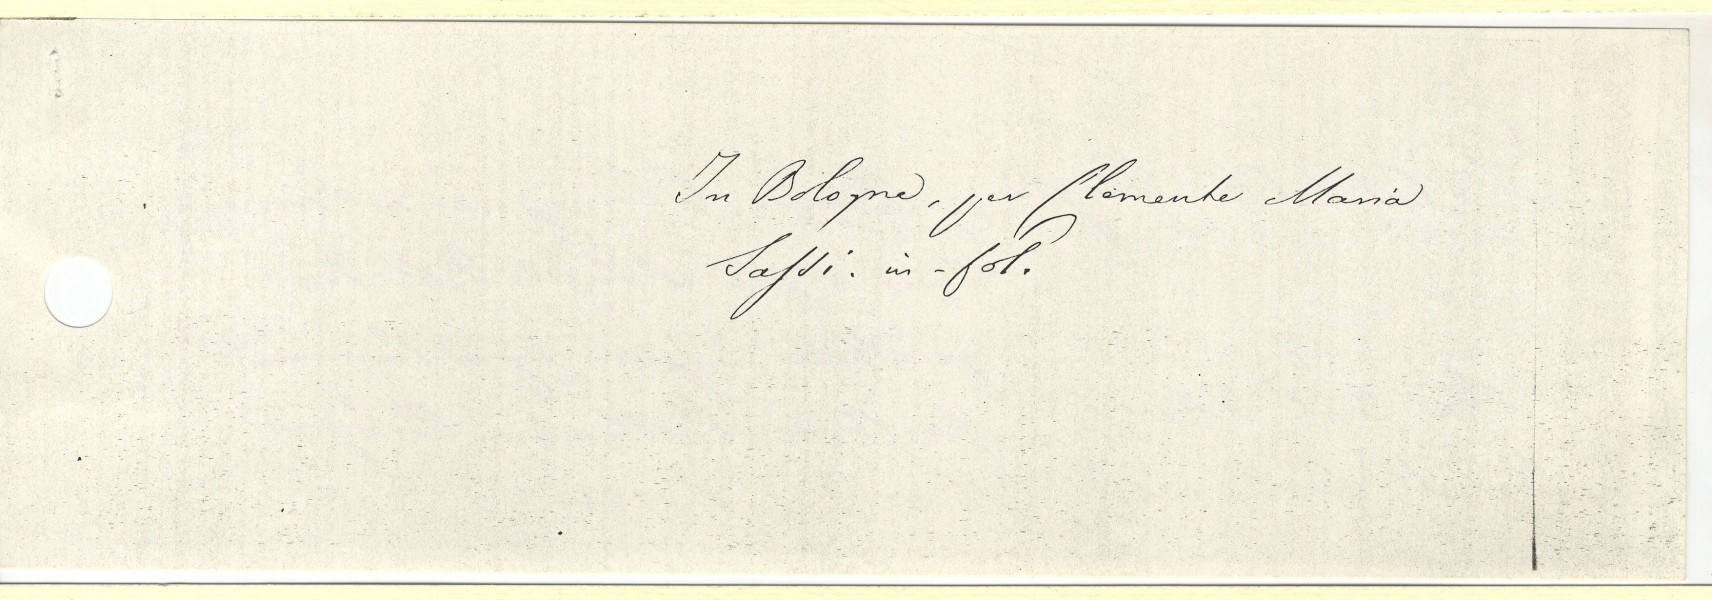 In Bologna, per Clemente Maria
Sassi. in-fol.